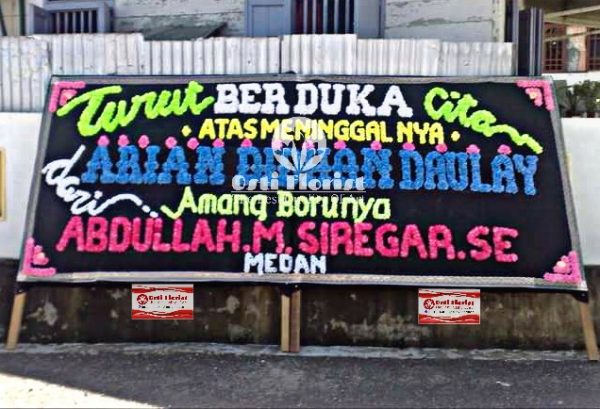 Turut BERDUKA Cita
ATAS MENINGGALNYA
ARIAN DAULAY
dari
Amang Borunya
ABDULLAH.M. SIREGAR.SE
MEDAN
Osti Florist
Osti Florist
Osti Florist